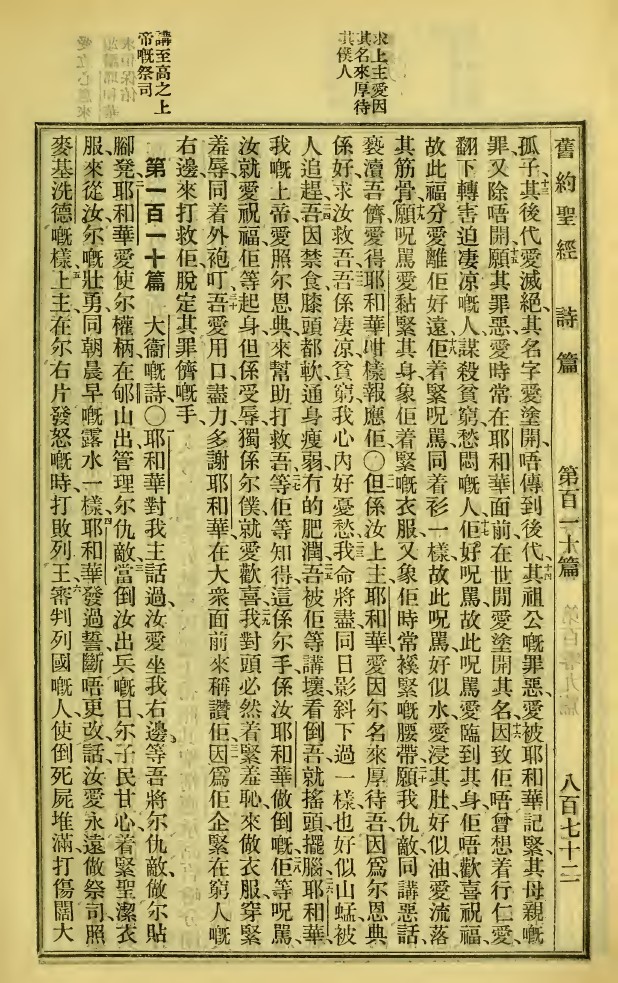 舊約聖經　詩篇　第百一十篇　八百七十二
求上主愛因
其名來厚待
其僕人
講至高之上
帝嘅祭司
孤子、其後代愛滅絕、其名字愛塗開、唔傳到後代、其祖公嘅罪惡、愛被耶和華記緊、其母親嘅
罪又除唔開、願其罪惡、愛時常在耶和華面前、在世閒愛塗開其名、因致佢唔曾想着行仁愛、
翻下轉害迫淒凉嘅人、謀殺貧窮愁悶嘅人、佢好呪罵、故此呪罵愛臨到其身、佢唔歡喜祝福、
故此福分愛離佢好遠、佢着緊呪罵、同着衫一樣、故此呪罵好似水愛浸其肚、好似油愛流落
其筋骨、願呪罵愛黏緊其身、象佢着緊嘅衣服、又象佢時常襟緊嘅腰帶、願我仇敵同講惡話、
褻瀆吾儕、愛得耶和華咁樣報應佢、〇但係汝上主耶和華、愛因尔名來厚待吾、因爲尔恩典
係好、求汝救吾、吾係淒凉貧窮、我心內好憂愁、我命將盡、同日影斜下過一樣、也好似山蜢被
人追趕、吾因禁食膝頭都軟、通身瘦弱、有的肥潤、吾被佢等講壞、看倒吾、就搖頭擺腦、耶和華、
我嘅上帝、愛照尔恩典、來幫助打救吾、等佢等知得這係尔手、係汝耶和華做倒嘅、佢等呪罵、
汝就愛祝福、佢等起身、但係受辱、獨係尔僕就愛歡喜、我對頭必然着緊羞恥來做衣服、穿緊
羞辱同着外袍、吖吾愛用口盡力多謝耶和華、在大衆面前來稱讚佢、因爲佢企緊在窮人嘅
右邊、來打救佢脫定其罪儕嘅手、
第一百一十篇　大衞嘅詩〇耶和華對我主話過、汝愛坐我右邊、等吾將尔仇敵、做尔貼
腳凳、耶和華愛使尔權柄、在郇山出、管理尔仇敵、當倒汝出兵嘅日、尔子民甘心着緊聖潔衣
服來從汝、尔嘅壯勇、同朝晨早嘅露水一樣、耶和華發過誓、斷唔更改、話、汝愛永遠做祭司、照
麥基洗德嘅樣、上主在尔右片、發怒嘅時、打敗列王、審判列國嘅人、使倒死屍堆滿、打傷闊大